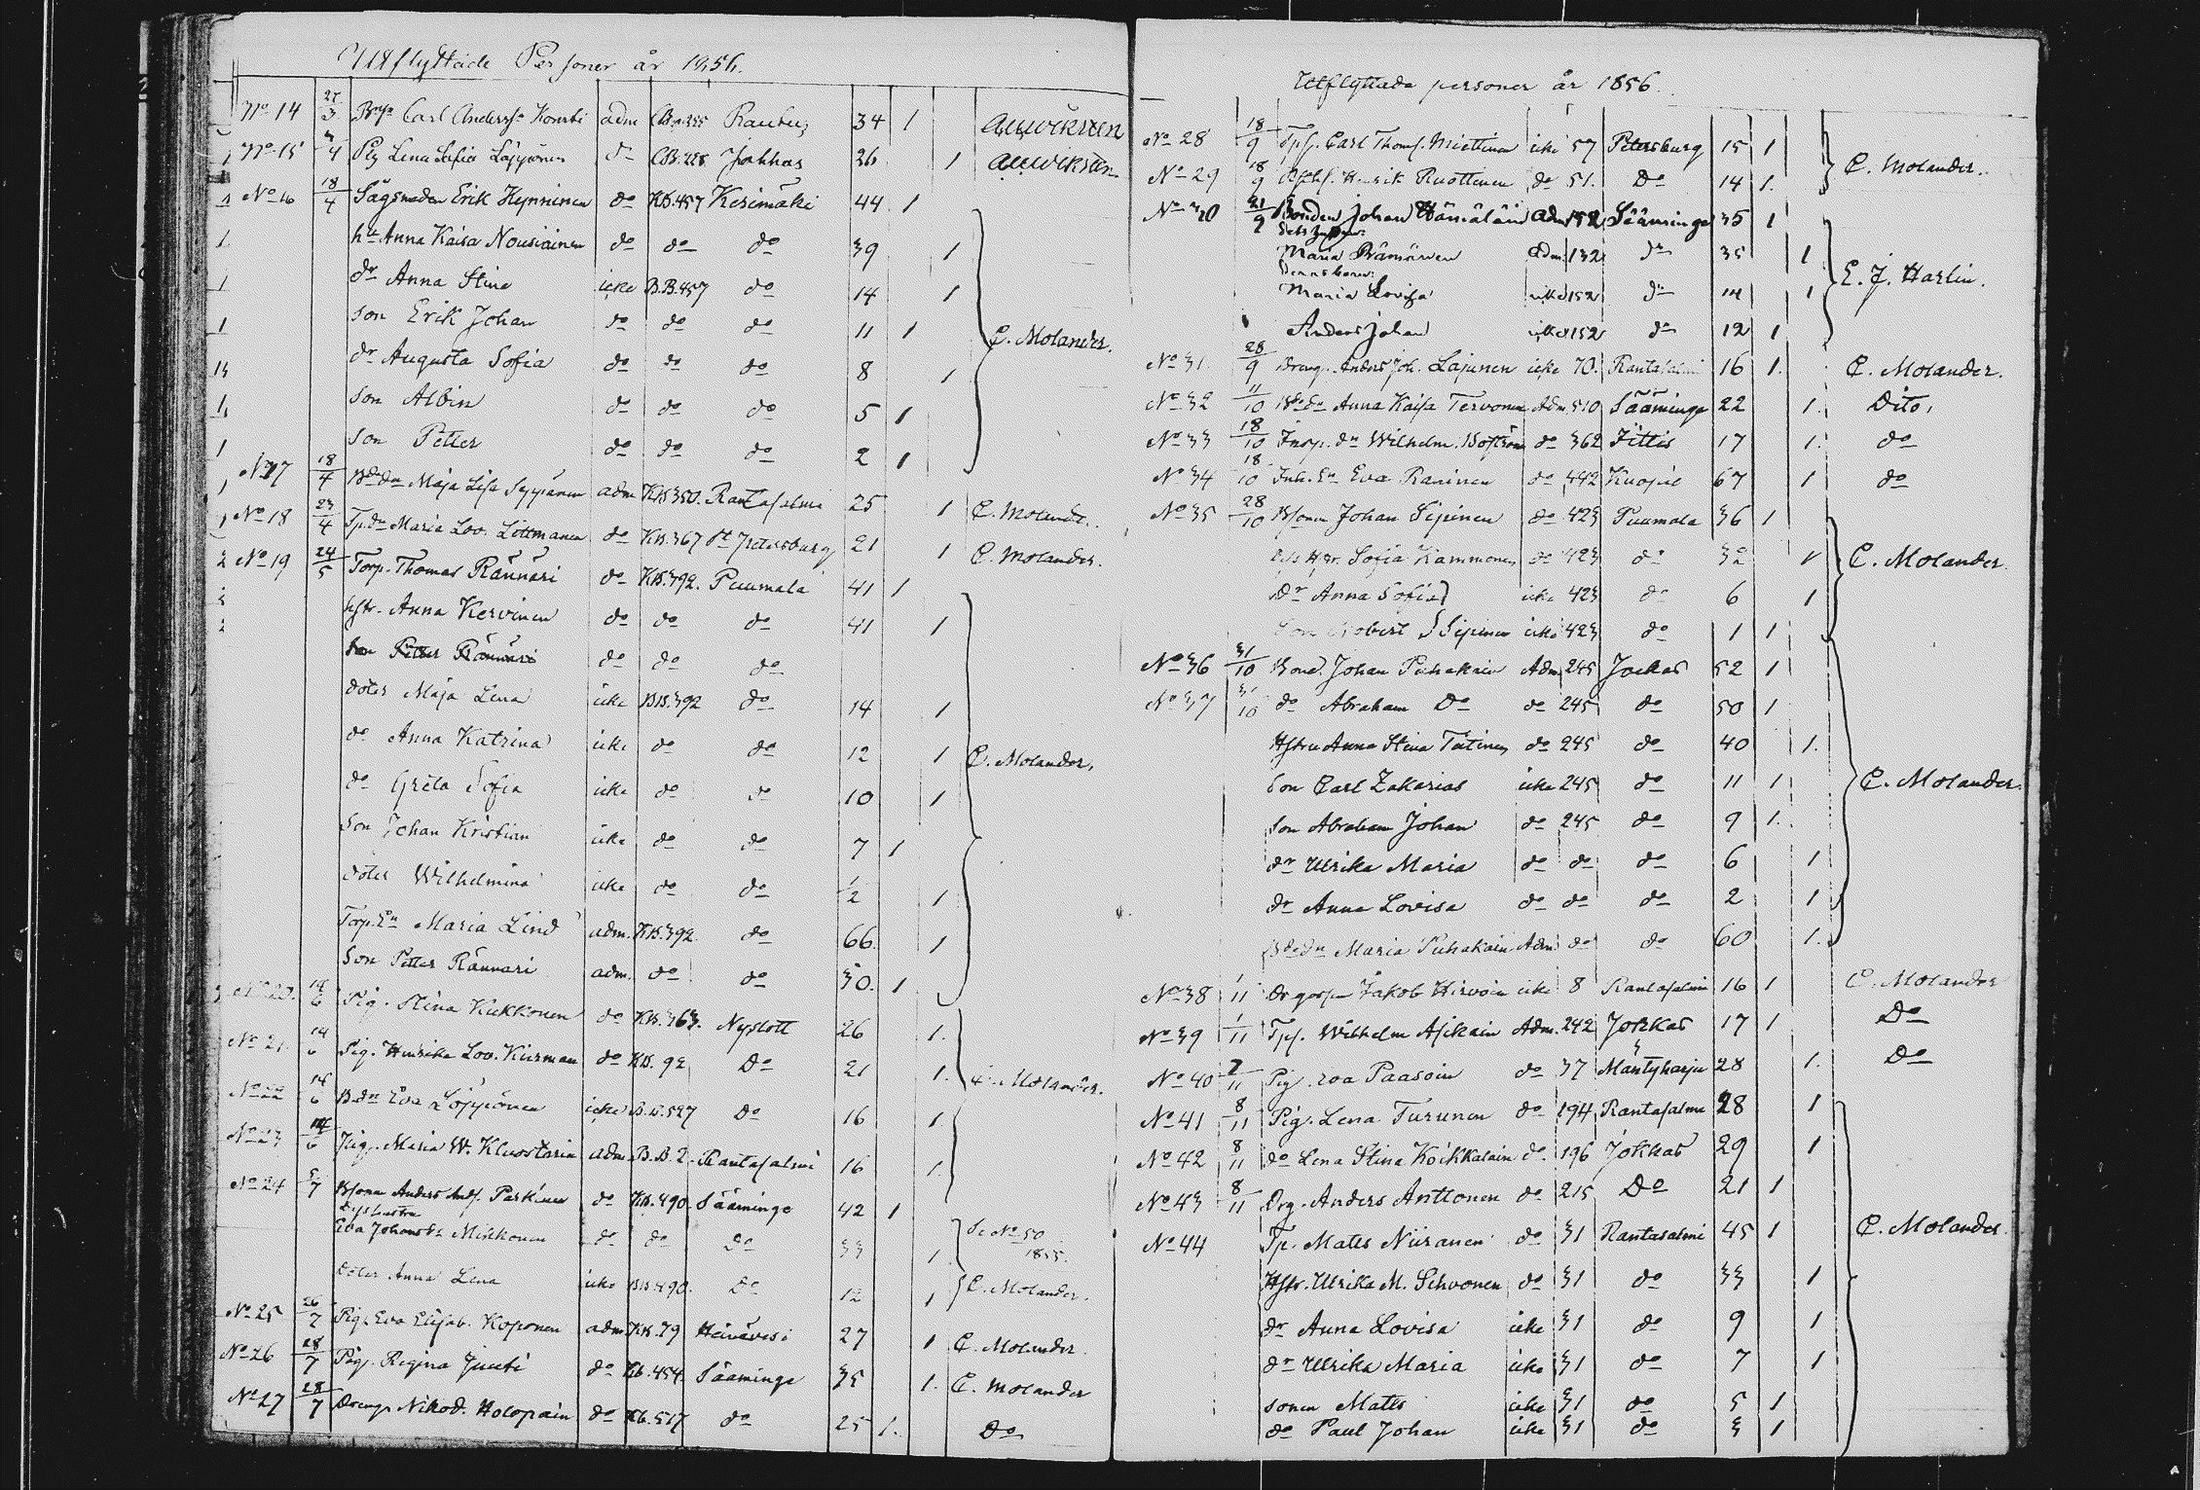 Utflyttade Personer år 1856.
No 14 27/3 Carl Anderss. adm 355 34 1
No 15 /4 Pig Lena Sofia do 228 Jokkas 26 1
1 No 16 18/4 Sågsmeden Erik Hynninen do KB.457 Kerimäki 44 1
1 Anna Kaisa Nousiainen do do do 39 1
1 dr Anna Stina icke B.B.457 do 14 1
1 son Erik Johan do do do 11 1 C. Molander.
dr Augusta Sofia do do do 8 1
son Albin do do do 5 1
1 son Petter do do do 2 1
No 17 18/4 Maja Lisa adm KB350. Rantasalmi 25 1 C. Molander.
No 18 23/4 Maria Lov. Littmanen do KB.367 St Petersburg 21 1 C. Molander.
2 No 19 24/5 Torp. Thomas Rännäri do KB.392. Puumala 41 1
hstr. Anna Kervinen do do do 41 1
son Petter Rännäri do do do
doter Maja Lena icke BB.392 do 14 1
do Anna Katrina icke do do 12 1 C. Molander.
do Greta Sofia icke do do 10 1
son Johan Kristian icke do do 7 1
doter Wilhelmina icke do do 1/2 1
Torp.En Maria Lind adm. KB.392. do 66 1
Son Petter Rännäri adm. do do 30. 1
No 20. 14/6 Pig. Stina Kukkonen do KB.363. Nyslott 26 1.
No 21. 14/6 Pig. Lov. do KB. 92 Do 21 1. C. Molander.
No 22 14/6 Eva icke 527 Do 16 1
No 23 14/6 Maria W. adm B.B.2. Rantasalmi 16 1
No 24 5/7 Anders do KB.490. Sääminge 42 1
Eva Mikkonen do do Do 33 1 Se No 50 1855.
doter Anna Lena icke BB.490. Do 12 1 C. Molander.
No 25 26/7 Pig. Eva Elisab. Koponen adm KB.79 Heinävesi 27 1 C. Molander.
No 26 28/7 Pig. Regina do 454 Sääminge 35 1. C. Molander
No 27 28/7 Dreng Nikod. Holopain do 517 do 25 1. Do
Utflyttade personer år 1856.
No 28 18/9 Carl Thoms. Miettinen icke 57 Petersburg 15 1
No 29 18/9 Ruottinen do 51. Do 14 1. C. Molander.
No 30 21/9 Bonden Johan Hämäläin Adm 152 Sääminge 35 1
Maria Adm 152 do 35 1
Maria Lovisa icke 152 do 14 1 E. J. Harlin.
Anders Johan icke 152 do 12 1
No 31. 28/9 Dreng. Anders Joh. Lajunen icke 70. Rantasalmi 16 1. C. Molander.
No 32 11/10 Anna Kaisa Tervonen Adm. 510 Sääminge 22 1. Dito,
No 33 18/10 Wilhelm. do 362 Jittis 17 1. do
No 34 18/10 Inh. En Eva Raninen do 442 Kuopio 67 1 do
No 35 28/10 Johan Sipinen do 423 Puumala 36 1
Sofia Kammonen do 423 do 32 1 C. Molander.
Dr Anna Sofia icke 423 do 6 1
Son Robert Sipinen icke 423 do 1 1
No 36 31/10 Bond. Johan Puhakain Adm 245 Jockas 52 1
No 37 31/10 do Abraham Do do 245 do 50 1
Hstru Anna Stina do 245 do 40 1.
Son Carl Zakarias icke 245 do 11 1 C. Molander.
Son Abraham Johan do 245 do 9 1.
dr Ulrika Maria do do do 6 1
dr Anna Lovisa do do do 2 1
Maria Puhakain Adm do do 60 1.
No 38 1/11 Jakob Hirvoin icke 8 Rantasalmi 16 1 C. Molander
No 39 1/11 Wilhelm Asikain Adm. 242 Jokkas 17 1 Do
No 40 7/11 Pig. Eva Paasoin do 37 Mäntyharju 28 1. Do
No 41 8/11 Pig. Lena Turunen do 194 Rantasalmi 28 1
No 42 8/11 do Lena Stina Koikkalain do. 196 Jokkas 29 1
No 43 8/11 Drg. Anders Anttonen do 215 Do 21 1
No 44 Tp. Matts Niiranen do 31 Rantasalmi 45 1 C. Molander.
Hstr. Ulrika M. Sihvonen do 31 do 33 1
dr Anna Lovisa icke 31 do 9 1
dr Ulrika Maria icke 31 do 7 1
sonen Matts icke 31 do 5 1
do Paul Johan icke 31 do 3 1